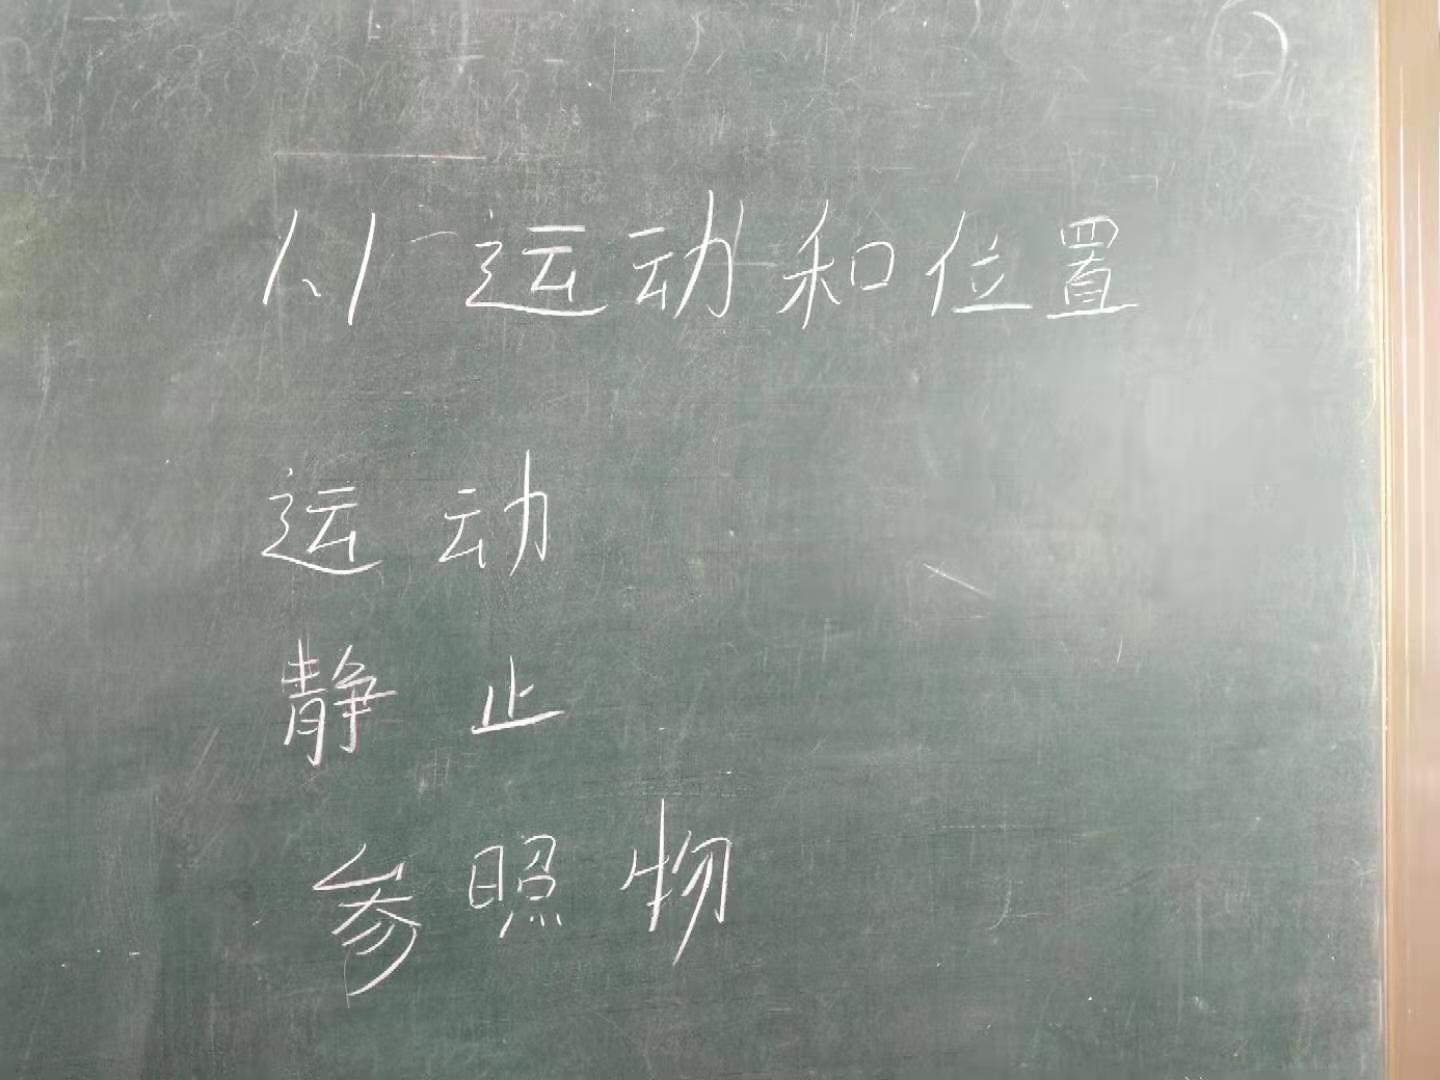 1.1 运动和位置
运动
静止
参照物